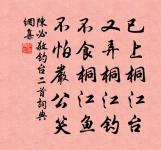 已上桐江钓台
又弄桐江钓
不食桐江鱼
不怕严公笑
陈必敬钓台二首词典
网集